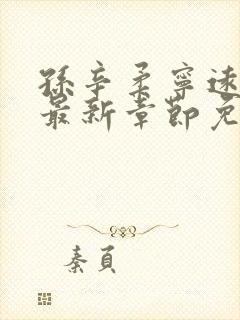 孫辛柔寧遠
最新章節免
秦頁